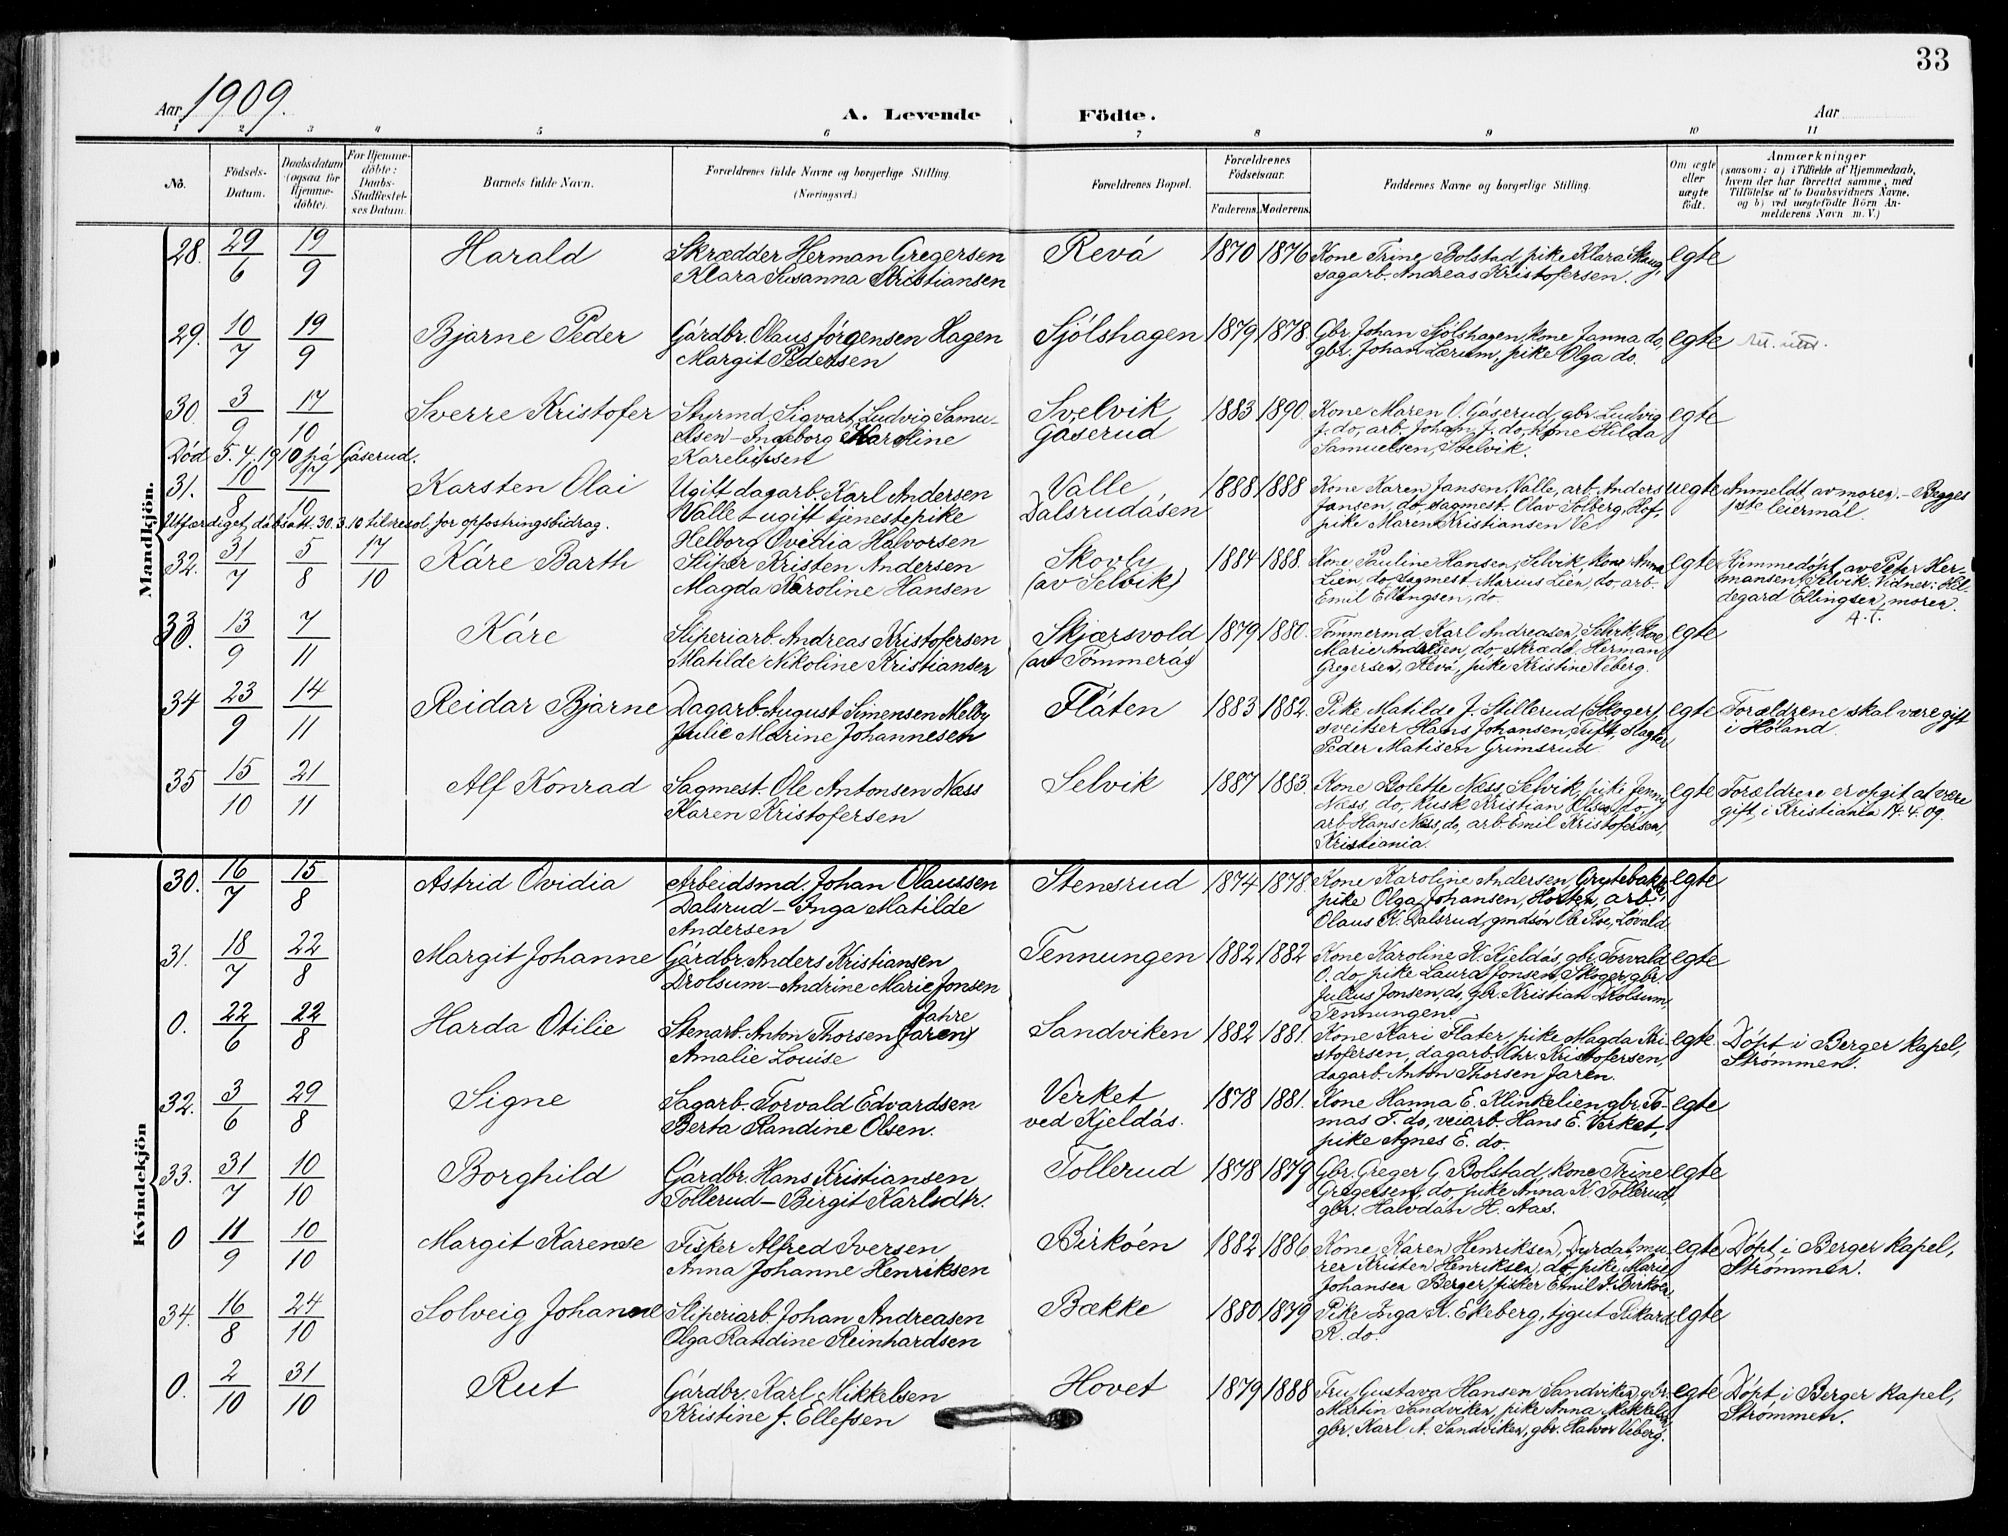 33
Aar 1909.
A. Levende Födte.
Aar
1 2 3 4 5 6 7 8 9 10 11
No.
Födsels-Datum.
Daabsdatum (ogsaa for Hjemmedöbte).
For Hjemmedöbte: Daabs-Stadfæstelses Datum.
Barnets fulde Navn.
Forældrenes fulde Navne og borgerlige Stilling. (Næringsvei.)
Forældrenes Bopæl.
Forældrenes Födselsaar.
Faderens. Moderens.
Faddernes Navne og borgerlige Stilling.
Om ægte eller uægte födt.
Anmærkninger
(saasom: a) i Tilfælde af Hjemmedaab,
hvem der har forrettet samme, med
Tilföielse af to Daabsvidners Navne,
og b) ved uægtefödte Börn An-
melderens Navn m. V.)
Mandkjön.
28. 29/6 19/9 Harald Skrædder Herman Gregersen Revå 1870 1876 Kone Trine Bolstad, pike Klara Skaug, egte
Klara Susanna Kristiansen sagarb. Andreas Kristofersen.
29. 10/7 19/9 Bjarne Peder Gårdbr. Olaus Jörgensen Hagen Sjölshagen 1879 1878. Gbr. Johan Sjölshagen, kone Janna do, egte
Margit Pedersen gbr. Johan Lærum, pike Olga do.
30. 3/9 17/10 Sverre Kristofer Styrmd. Sigvart Ludvig Samu- Svelvik 1883 1890. Kone Maren O. Gåserud, gbr. Ludvig egte
elsen - Ingeborg Karoline Gåserud J. do, arb. Johan J. do, kone Hilda
Kareliussen Samuelsen, Svelvik.
Död 5.4.1910 på Gåserud.
31. 10/8 17/10 Karsten Olai Ugift dagarb. Karl Andersen Valle, 1888 1888 Kone Karen Jansen, Valle, arb. Anders uegte Anmeldt av moren. - Begges
Valle - ugift tjenestepike Dalsrudåsen Jansen, do, sagmest. Olav Solberg, Hof, 1ste leiermål.
Helborg Ovedia Halvorsen pike Maren Kristiansen Ve
Utfærdiget dåbsatt. 30.3.10 til resol. for opfostringsbidrag.
32. 31/7 5/8 17/10 Kåre Barth Sliper Kristen Andersen Skovly 1884 1888. Kone Pauline Hansen, Selvik, kone Anna egte Hjemmedöpt av Peter Her-
Magda Karoline Hansen (av Selvik) Lien, do, sagmest. Marius Lien, do, arb. mansen, Selvik. Vidner: Hil-
Emil Ellingsen, do. degard Ellingsen, moren.
A.T.
33. 13/9 7/11 Kåre Sliperiarb. Andreas Kristofersen Skjærsvold 1879 1880. Tömmermd. Karl Andreasen, Selvik, kone egte
Matilde Nikoline Kristiansen (av Tömmerås) Marie Andersen, do, skrædd. Herman
Gregersen, Revå, pike Kristine Viberg.
34 23/9 14/11 Reidar Bjarne Dagarb. August Simensen Melby Flåten 1883 1882. Pike Matilde J. Stillerud (Skoger) egte Forældrene skal være gift
Julie Marine Johannesen sveitser Hans Johansen, Tuft, slagter i Höland.
Peder Matisen Grimsrud.
35 15/10 21/11 Alf Konrad Sagmest. Ole Antonsen Næss Selvik 1887 1883. Kone Bolette Næss, Selvik, pike Jenny egte Forældrene er opgit at være
Karen Kristofersen Næss, do, kusk Kristian Olsen, do, gift i Kristiania 14.4.09.
arb. Hans Næss, do, arb. Emil Kristofersen,
Kristiania.
Kvindekjön
30. 16/7 15/8 Astrid Ovidia Arbeidsmd. Johan Olaussen Stensrud 1874 1878. Kone Karoline Andersen Grytebakke, egte
Dalsrud - Inga Matilde pike Olga Johansen, Horten, arb.
Andersen Olaus K. Dalsrud, gmdsön Ole Roe, Lövald
31. 18/7 22/8 Margit Johanne Gårdbr. Anders Kristiansen Tennungen 1882 1882 Kone Karoline K. Kjeldås, gbr. Torvald egte
Drolsum - Andrine Marie Jonsen O. do, pike Laura Jonsen, Skoger, gbr.
Julius Jonsen, do, gbr. Kristian Drolsum,
Tennungen.
0. 22/6 22/8 Harda Otilie Stenarb. Anton Thorsen (Jaren) Jahre Sandviken 1882 1881. Kone Kari Flater, pike Magda Kri- egte. Döpt i Berger kapel,
Amalie Louise stofersen, dagarb. Chr. Kristofersen, Strömmen.
dagarb. Anton Thorsen Jaren.
32. 3/6 29/8 Signe Sagarb. Torvald Edvardsen Verket 1878 1881. Kone Hanna E. Klinkelien, gbr. To- egte
Berta Randine Olsen. ved Kjeldås. mas T. do, veiarb. Hans E. Verket,
pike Agnes E. do.
33. 31/7 10/10 Borghild Gårdbr. Hans Kristiansen Tollerud 1878 1879 Gbr. Greger G. Bolstad, kone Trine egte
Tollerud - Birgit Karlsdtr. Gregersen, do, pike Anna K. Tollerud,
gbr. Halvdan H. Aas.
0 11/9 10/10 Margit Karense Fisker Alfred Iversen Birköen 1882 1886 Kone Karen Henriksen, Dyrdal, mu- egte Döpt i Berger kapel,
Anna Johanne Henriksen rer Kristen Henriksen, do, pike Marie Strömmen.
Johansen Berger, fisker Emil I. Birköen
34. 16/8 24/10 Solveig Johanne Sliperiarb. Johan Andreasen Bække 1880 1879 Pike Inga K. Ekeberg, tjgut Rikard egte
Olga Randine Reinhardsen R. do.
0. 2/10 31/10 Rut Gårdbr. Karl Mikkelsen Hovet 1879 1888 Fru Gustava Hansen Sandviken, gbr. egte Döpt i Berger kapel,
Kristine J. Ellefsen Martin Sandviken, pike Anna Mikkelsen Strömmen.
gbr. Karl A. Sandviken, gbr. Halvor Viberg.